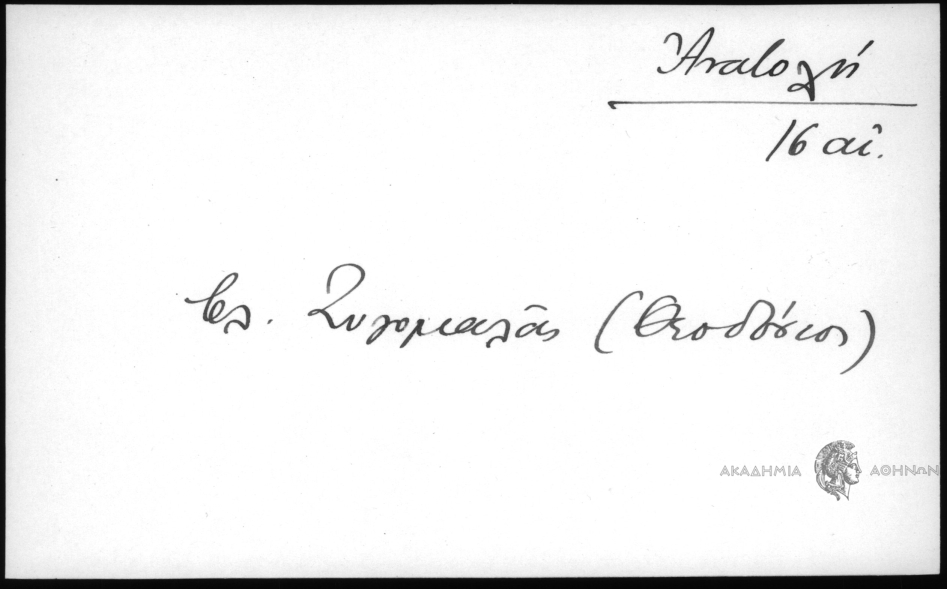 Ἀνατολή
16 αἰ.
Βλ. Ζυγομαλᾶς (Θεοδόσιος)
ΑΚΑΔΗΜΙΑ ΑΘΗΝΩΝ